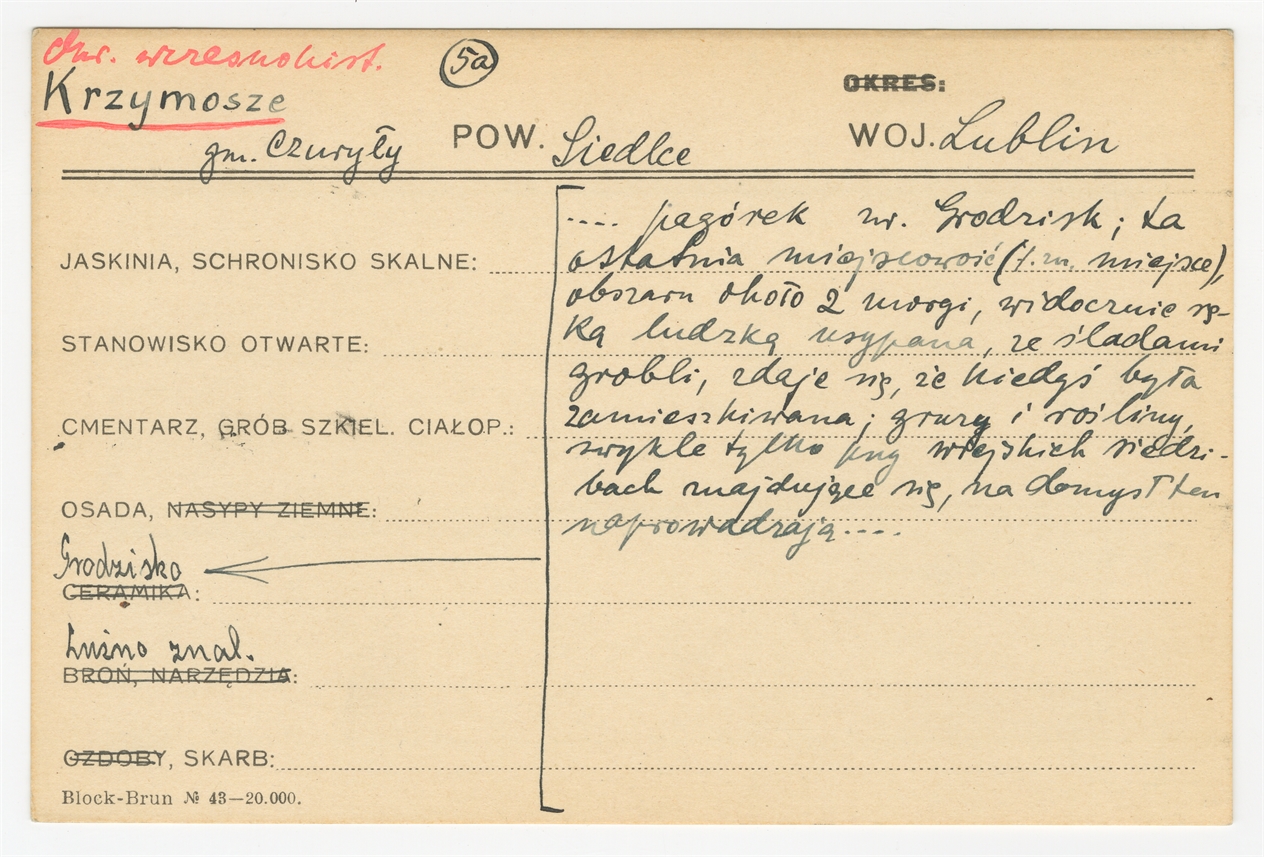 Okr. wczesnohist.
5a
Krzymosze
OKRES:
gm. Czuryły POW. Siedlce WOJ. Lublin
.... pagórek zw. Grodzisk; ta
JASKINIA, SCHRONISKO SKALNE: ostatnia miejscowość (t.zn. miejsce),
obszaru około 2 morgi, widocznie rę-
STANOWISKO OTWARTE: ką ludzką usypana, ze śladami
grobli, zdaje się, że kiedyś była
CMENTARZ, GRÓB SZKIEL. CIAŁOP.: zamieszkiwana; gruzy i rośliny,
zwykle tylko przy wiejskich siedzi-
bach znajdujące się, na domysł ten
OSADA, NASYPY ZIEMNE: naprowadzają....
Grodzisko
CERAMIKA:
Luźno znal.
BROŃ, NARZĘDZIA:
OZDOBY, SKARB:
Block-Brun № 43—20.000.